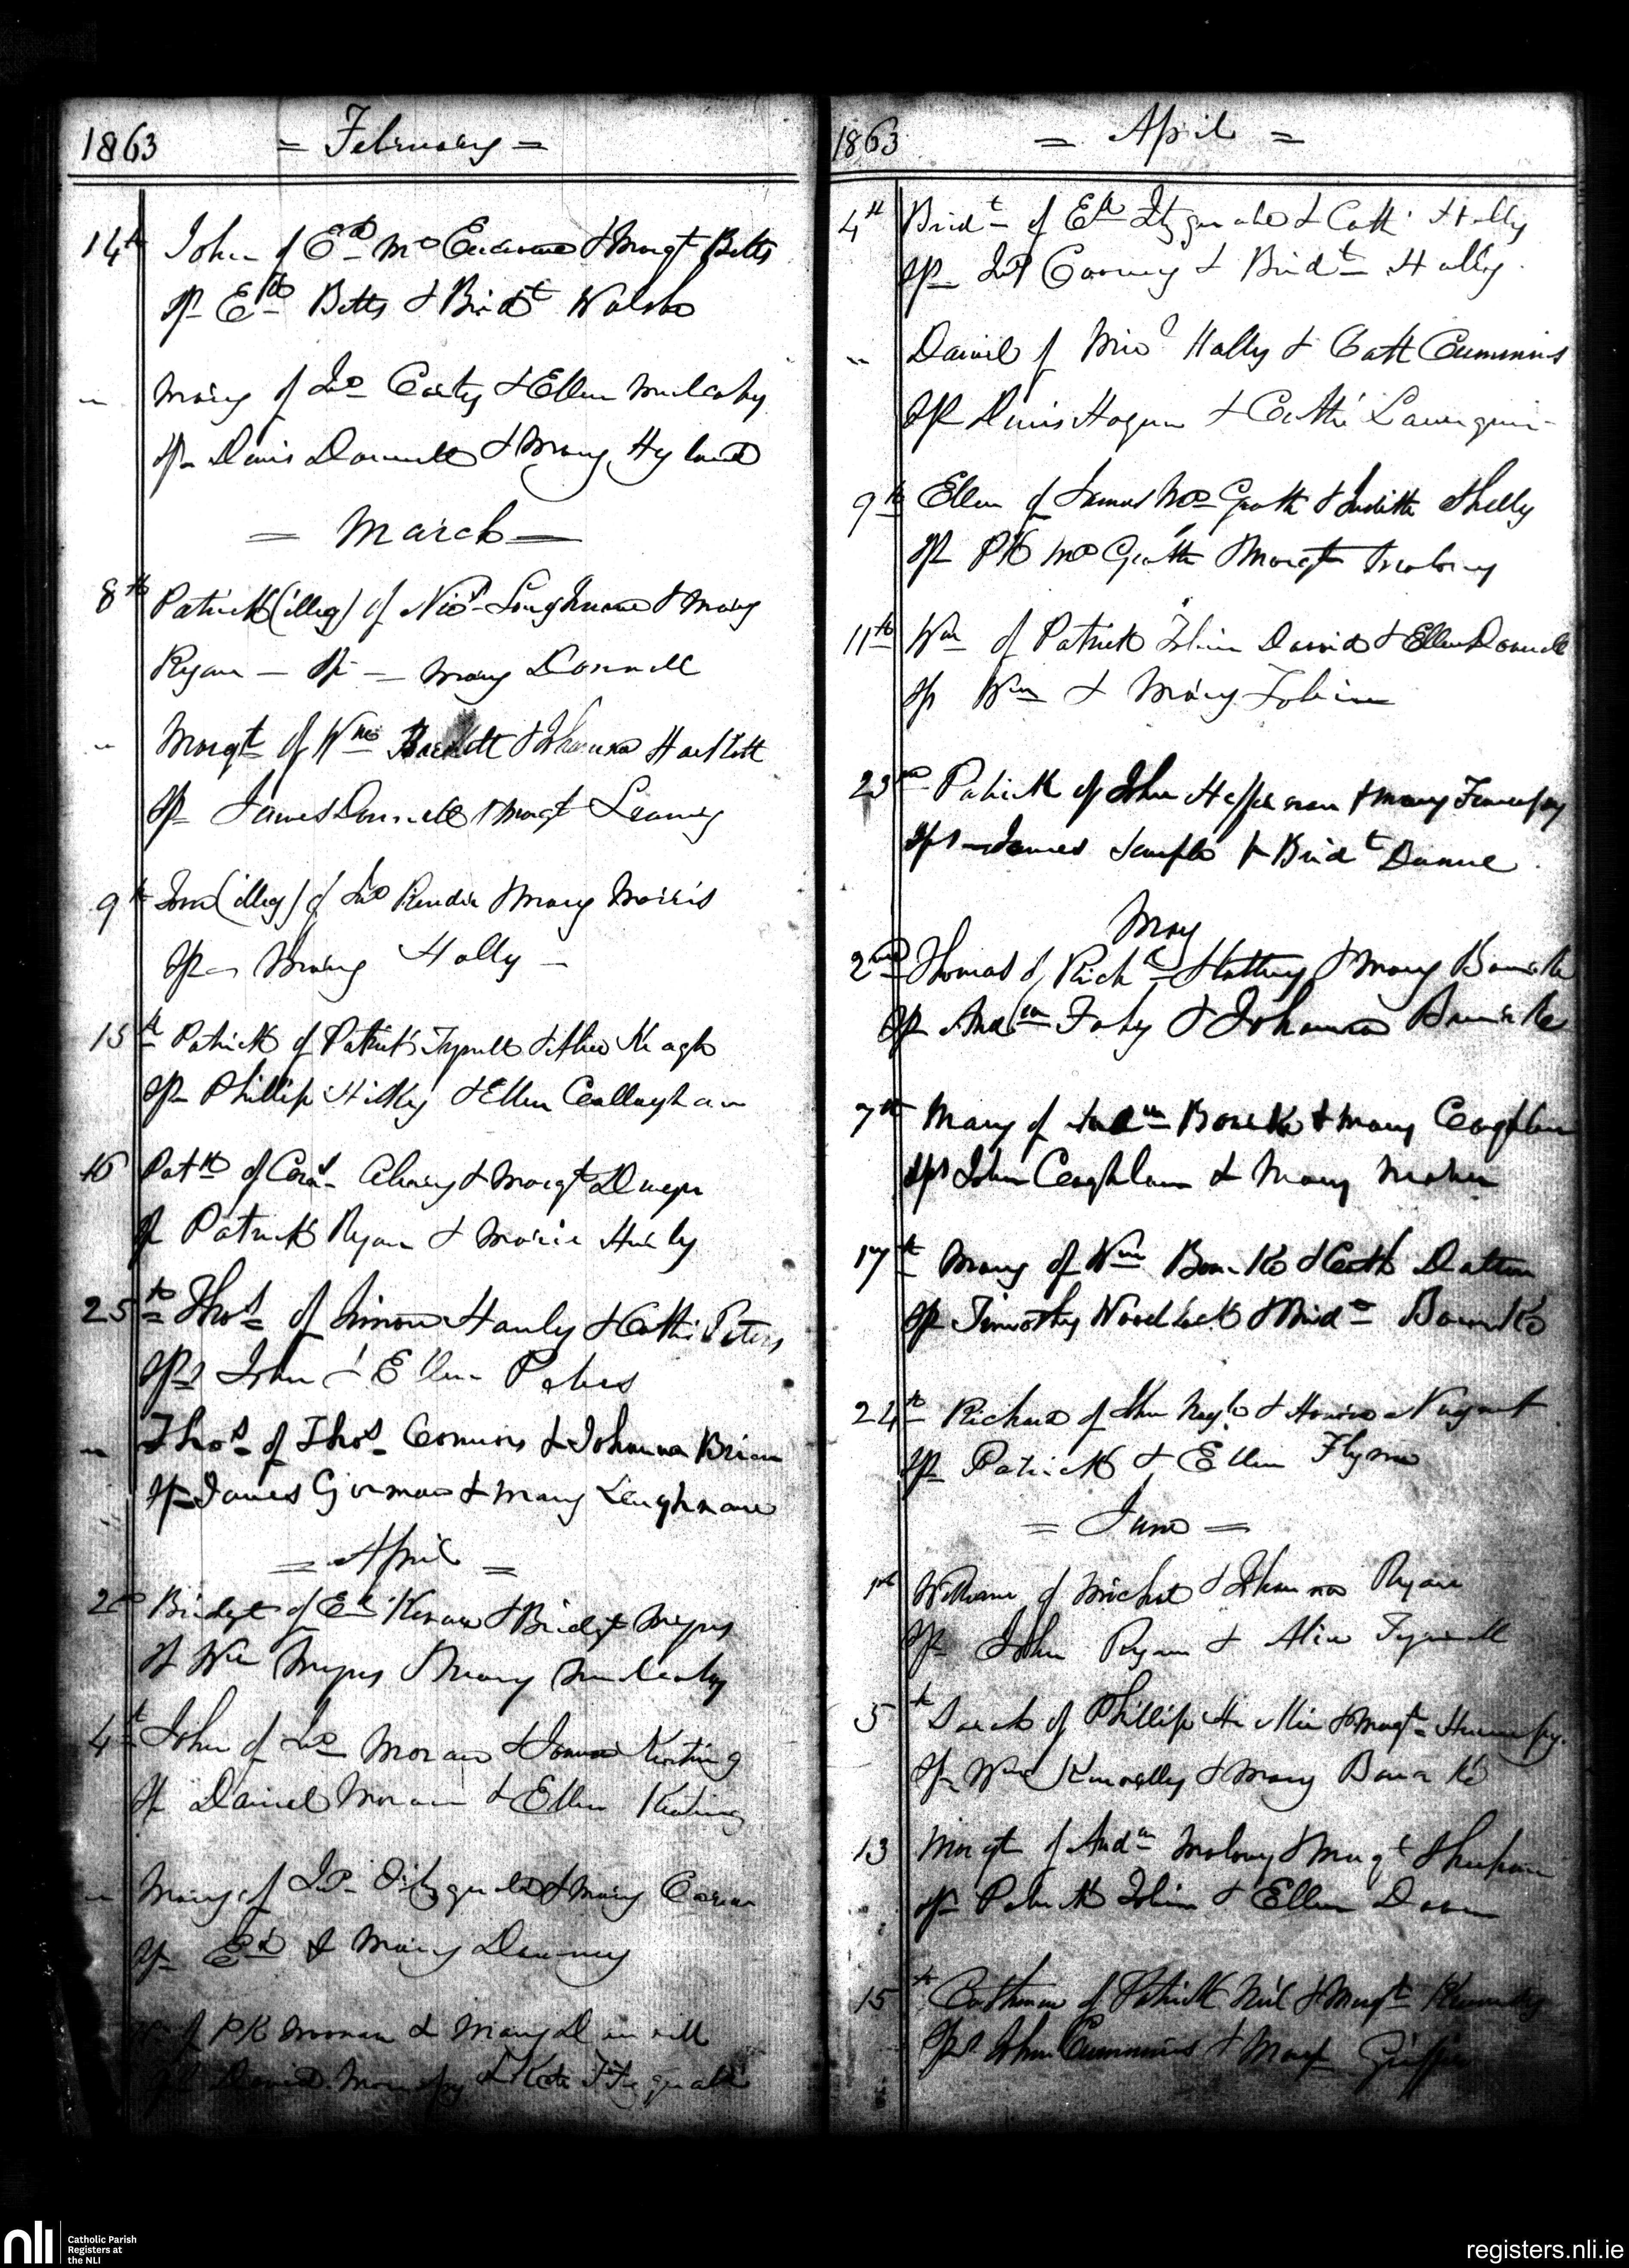 1863 = February =
14th John of Ed Mc Encroe & Margt Betts
Sp Ed Betts & Bridt Walsh
" Mary of Jno Carty & Ellen Mulcahy
Sp Denis Donnell & Mary Hyland
= March =
8th Patrick (illeg) of Nics Loughnane & Mary
Ryan - Sp - Mary Donnell
" Margt of Wm Hackett & Johanna
Sp James Donnell & Margt Leamy
9th (illeg) of Jno & Mary Morris
Sp Mary Hally
15th Patrick of Patrick Tyrrell & Keogh
Sp Phillip Hickey & Ellen Callaghan
16 Patk of & Margt Dwyer
Sp Patrick Ryan & Maria
25th Thos of Simon Hanly & Cathe Peters
Sps John & Ellen Peters
" Thos of Thos Connors & Johanna Brien
Sp James Gorman & Mary Loughnane
= April =
2nd Bridget of Ed Kirwan & Bridget Meyres
Sp Wm Meyres & Mary Mulcahy
4th John of Jno Moran & Keating
Sp Daniel Moran & Ellen Keating
" Mary of Jno Fitzgerald & Mary
Sp Ed & Mary Downey
of Pk Noonan & Mary
Sp David & Kate Fitzgerald
1863 = April =
4th Bridt of Ed Fitzgerald & Cath Hally
Sp Jno Cooney & Bridt Hally
" Daniel of Micl Hally & Cath Cummins
Sp Denis Hogan & Cathe
9th Ellen of James Mc Grath & Judith Shelly
Sp Pk Mc Grath & Margt Moloney
11th Wm of Patrick Tobin & Ellen Donnell
Sp Wm & Mary Tobin
23rd Patrick of John Heffernan & Mary
Sps James & Bridt
May
2nd Thomas of Richd Slattery & Mary Bourke
Sp Andw Fahy & Johanna Bourke
7th Mary of Andw Bourke & Mary Coghlan
Sps John Coughlan & Mary Maher
17th Mary of Wm Bourke & Cath Dalton
Sp Timothy Woodlock & Bridt Bourke
24th Richard of John Nagle & Honora Nugent
Sp Patrick & Ellen Flynn
= June =
1st William of Michal & Johanna Ryan
Sp John Ryan & Alice Tyrrell
5th Sarah of Phillip & Margt
Sp Wm Kennelly & Mary Bourke
13 Margt of Andw Molony & Margt
Sp Patrick Tobin & Ellen
15th Catherine of Patrick Neil & Margt Kennedy
Sps John Cummins & Margt Griffin
nli
Catholic Parish
Registers at
the NLI
registers.nli.ie